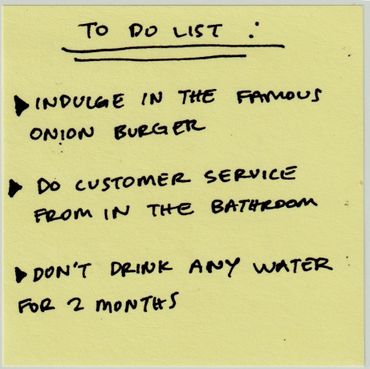 TO DO LIST :
▶ INDULGE IN THE FAMOUS
ONION BURGER
▶ DO CUSTOMER SERVICE
FROM IN THE BATHROOM
▶ DON'T DRINK ANY WATER
FOR 2 MONTHS